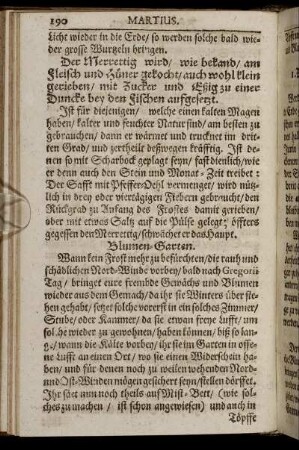 190 MARTIUS.
licht wieder in die Erde/ so werden solche bald wie-
der grosse Wurzeln bringen.
Der Merrettig wird/ wie bekand/ am
Fleisch und Hüner gekocht/ auch wohl klein
gerieben/ mit Zucker und Eßig zu einer
Duncke bey den Fischen aufgesetzt.
Ist für diejenigen/ welche einen kalten Magen
haben/ kalter und feuchter Natur sind/ am besten zu
gebrauchen/ dann er wärmet und trucknet im drit-
ten Grad/ und zertheilt deßwegen kräfftig. Ist de-
nen so mit Scharbock geplagt seyn/ fast dienlich/ wie
er denn auch den Stein und Monat-Zeit treibet:
Der Safft mit Pfeffer-Oehl vermenget/ wird nütz-
lich in drey oder viertägigen Fiebern gebraucht/ den
Rückgrad zu Anfang des Frostes damit gerieben/
aber mit etwas Saltz auf die Pülse gelegt; öffters
gegessen den Merrettig/ schwächet er das Haupt.
Blumen-Garten.
Wann kein Frost mehr zu befürchten/ die rauh und
schädlichen Nord-Winde vorbey/ bald nach Gregorii
Tag/ bringet eure frembde Gewächs und Blumen
wieder aus dem Gemach/ da ihr sie Winters über ste-
hen gehabt/ setzet solche vorerst in ein solches Zimmer/
Stube/ oder Kammer/ da sie etwan freye Lufft/ um
solche wieder zu gewohnen/ haben können/ biß so lan-
g./ wann die Kälte vorbey/ ihr sie im Garten in offe-
ne Lufft an einen Ort/ wo sie einen Widerschein ha-
ben/ und für denen noch zu weilen wehenden Nord-
und Ost-Winden mögen gesichert seyn/ stellen dörffet.
Ihr säet nun noch theils auf Mist-Bett/ (wie sol-
ches zu machen/ ist schon angewiesen) und auch in
Töpffe